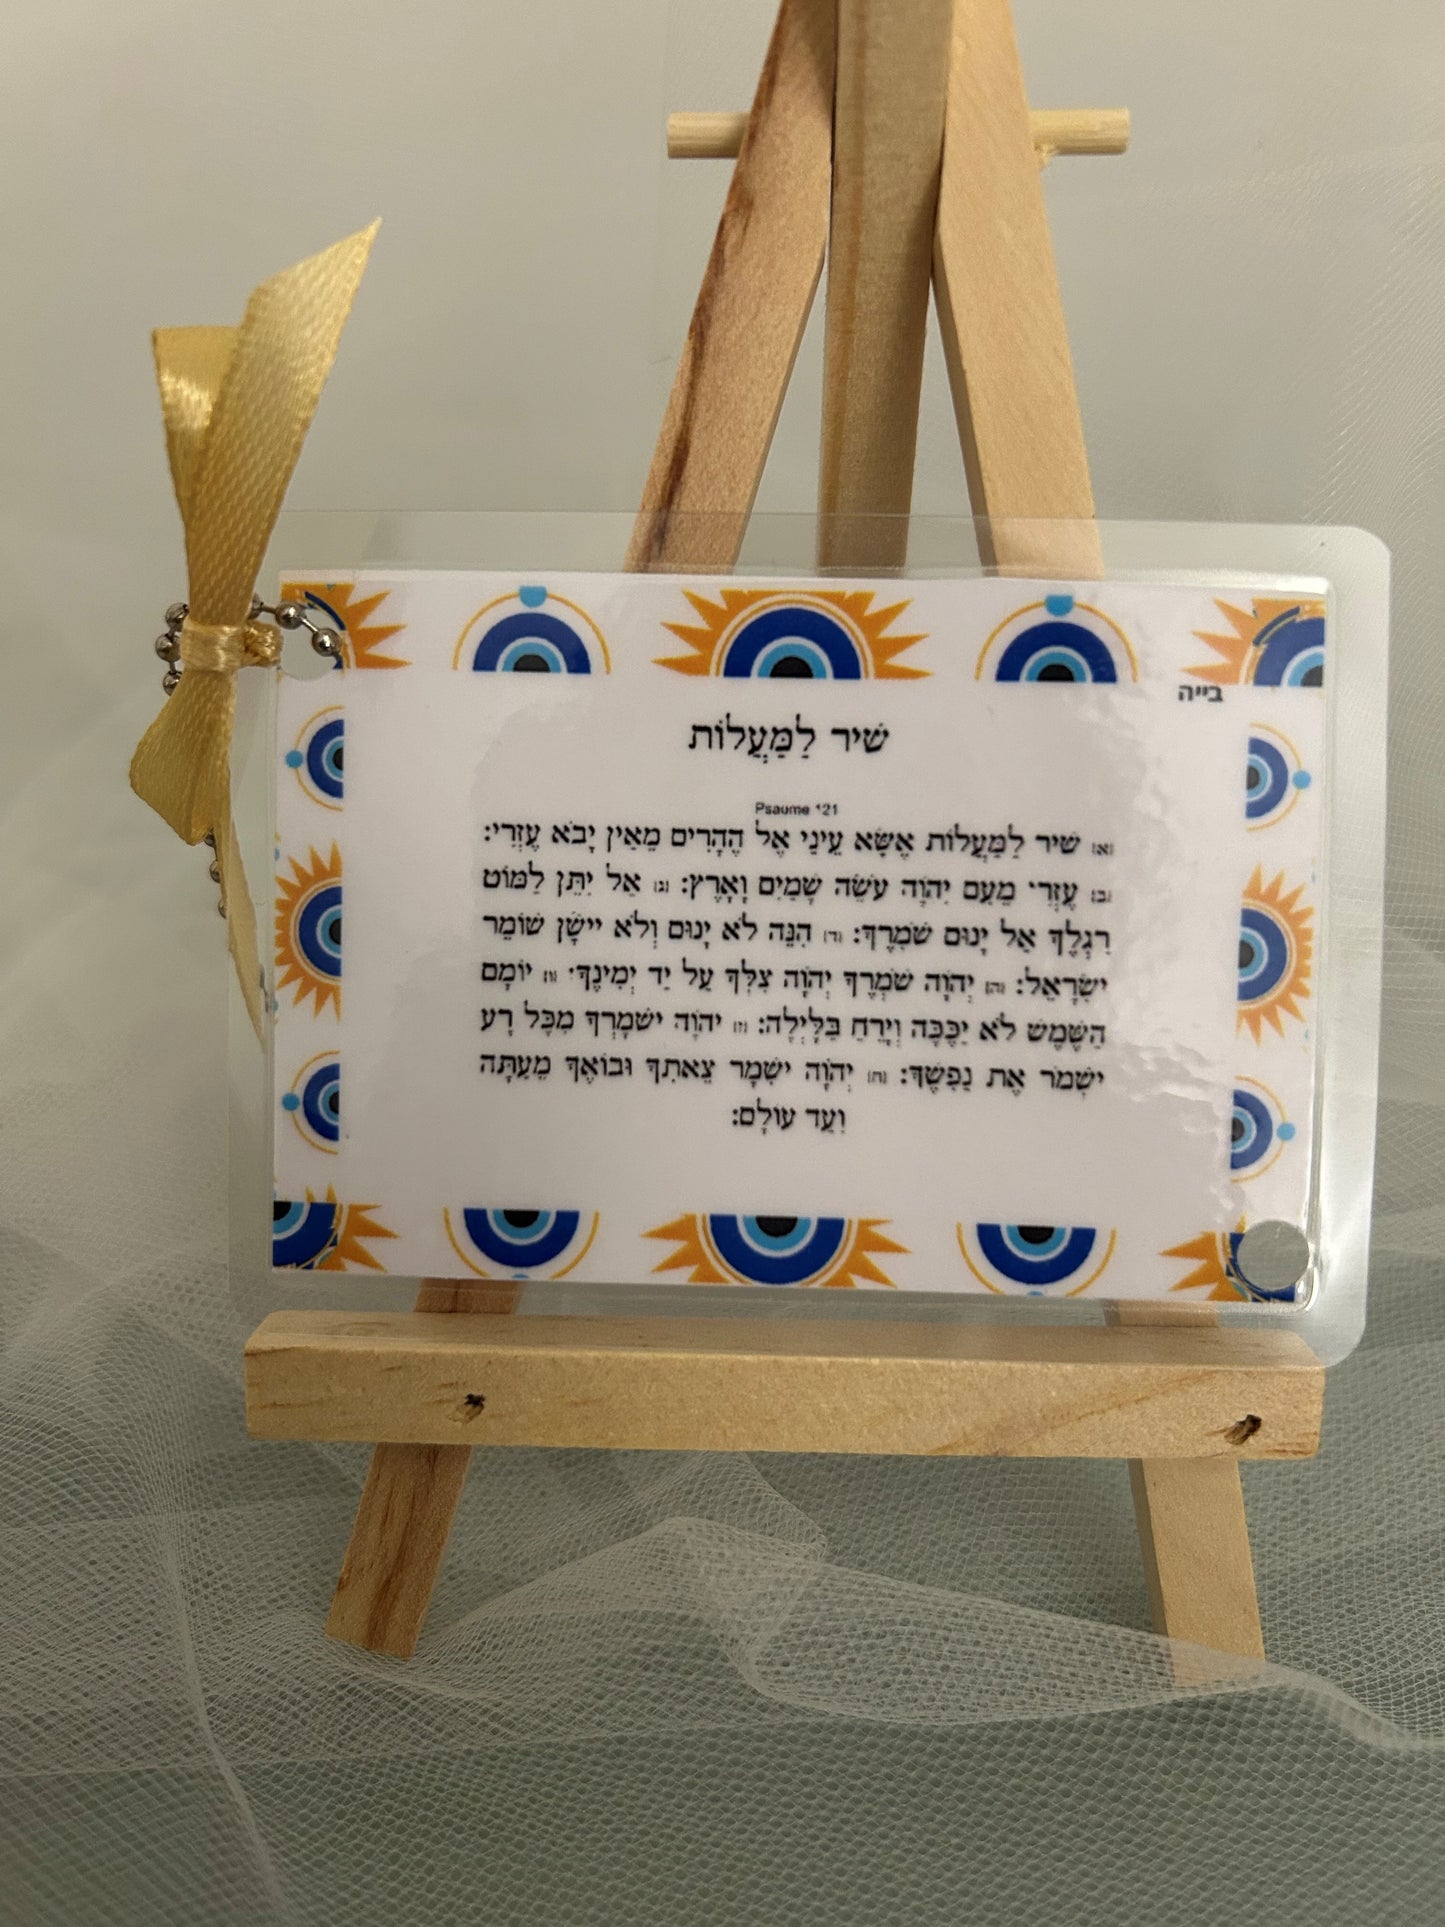 בייה
שִׁיר לַמַּעֲלוֹת
Psaume 121
(א) שִׁיר לַמַּעֲלוֹת אֶשָּׂא עֵינַי אֶל הֶהָרִים מֵאַיִן יָבֹא עֶזְרִי:
(ב) עֶזְרִי מֵעִם יְהֹוָה עֹשֵׂה שָׁמַיִם וָאָרֶץ: (ג) אַל יִתֵּן לַמּוֹט
רַגְלֶךָ אַל יָנוּם שֹׁמְרֶךָ: (ד) הִנֵּה לֹא יָנוּם וְלֹא יישָׁן שׁוֹמֵר
יִשְׂרָאֵל: (ה) יְהֹוָה שֹׁמְרֶךָ יְהֹוָה צִלְּךָ עַל יַד יְמִינֶךָ: (ו) יוֹמָם
הַשֶּׁמֶשׁ לֹא יַכֶּכָּה וְיָרֵחַ בַּלָּיְלָה: (ז) יְהֹוָה יִשְׁמָרְךָ מִכָּל רָע
יִשְׁמֹר אֶת נַפְשֶׁךָ: (ח) יְהֹוָה יִשְׁמָר צֵאתְךָ וּבוֹאֶךָ מֵעַתָּה
וְעַד עוֹלָם: